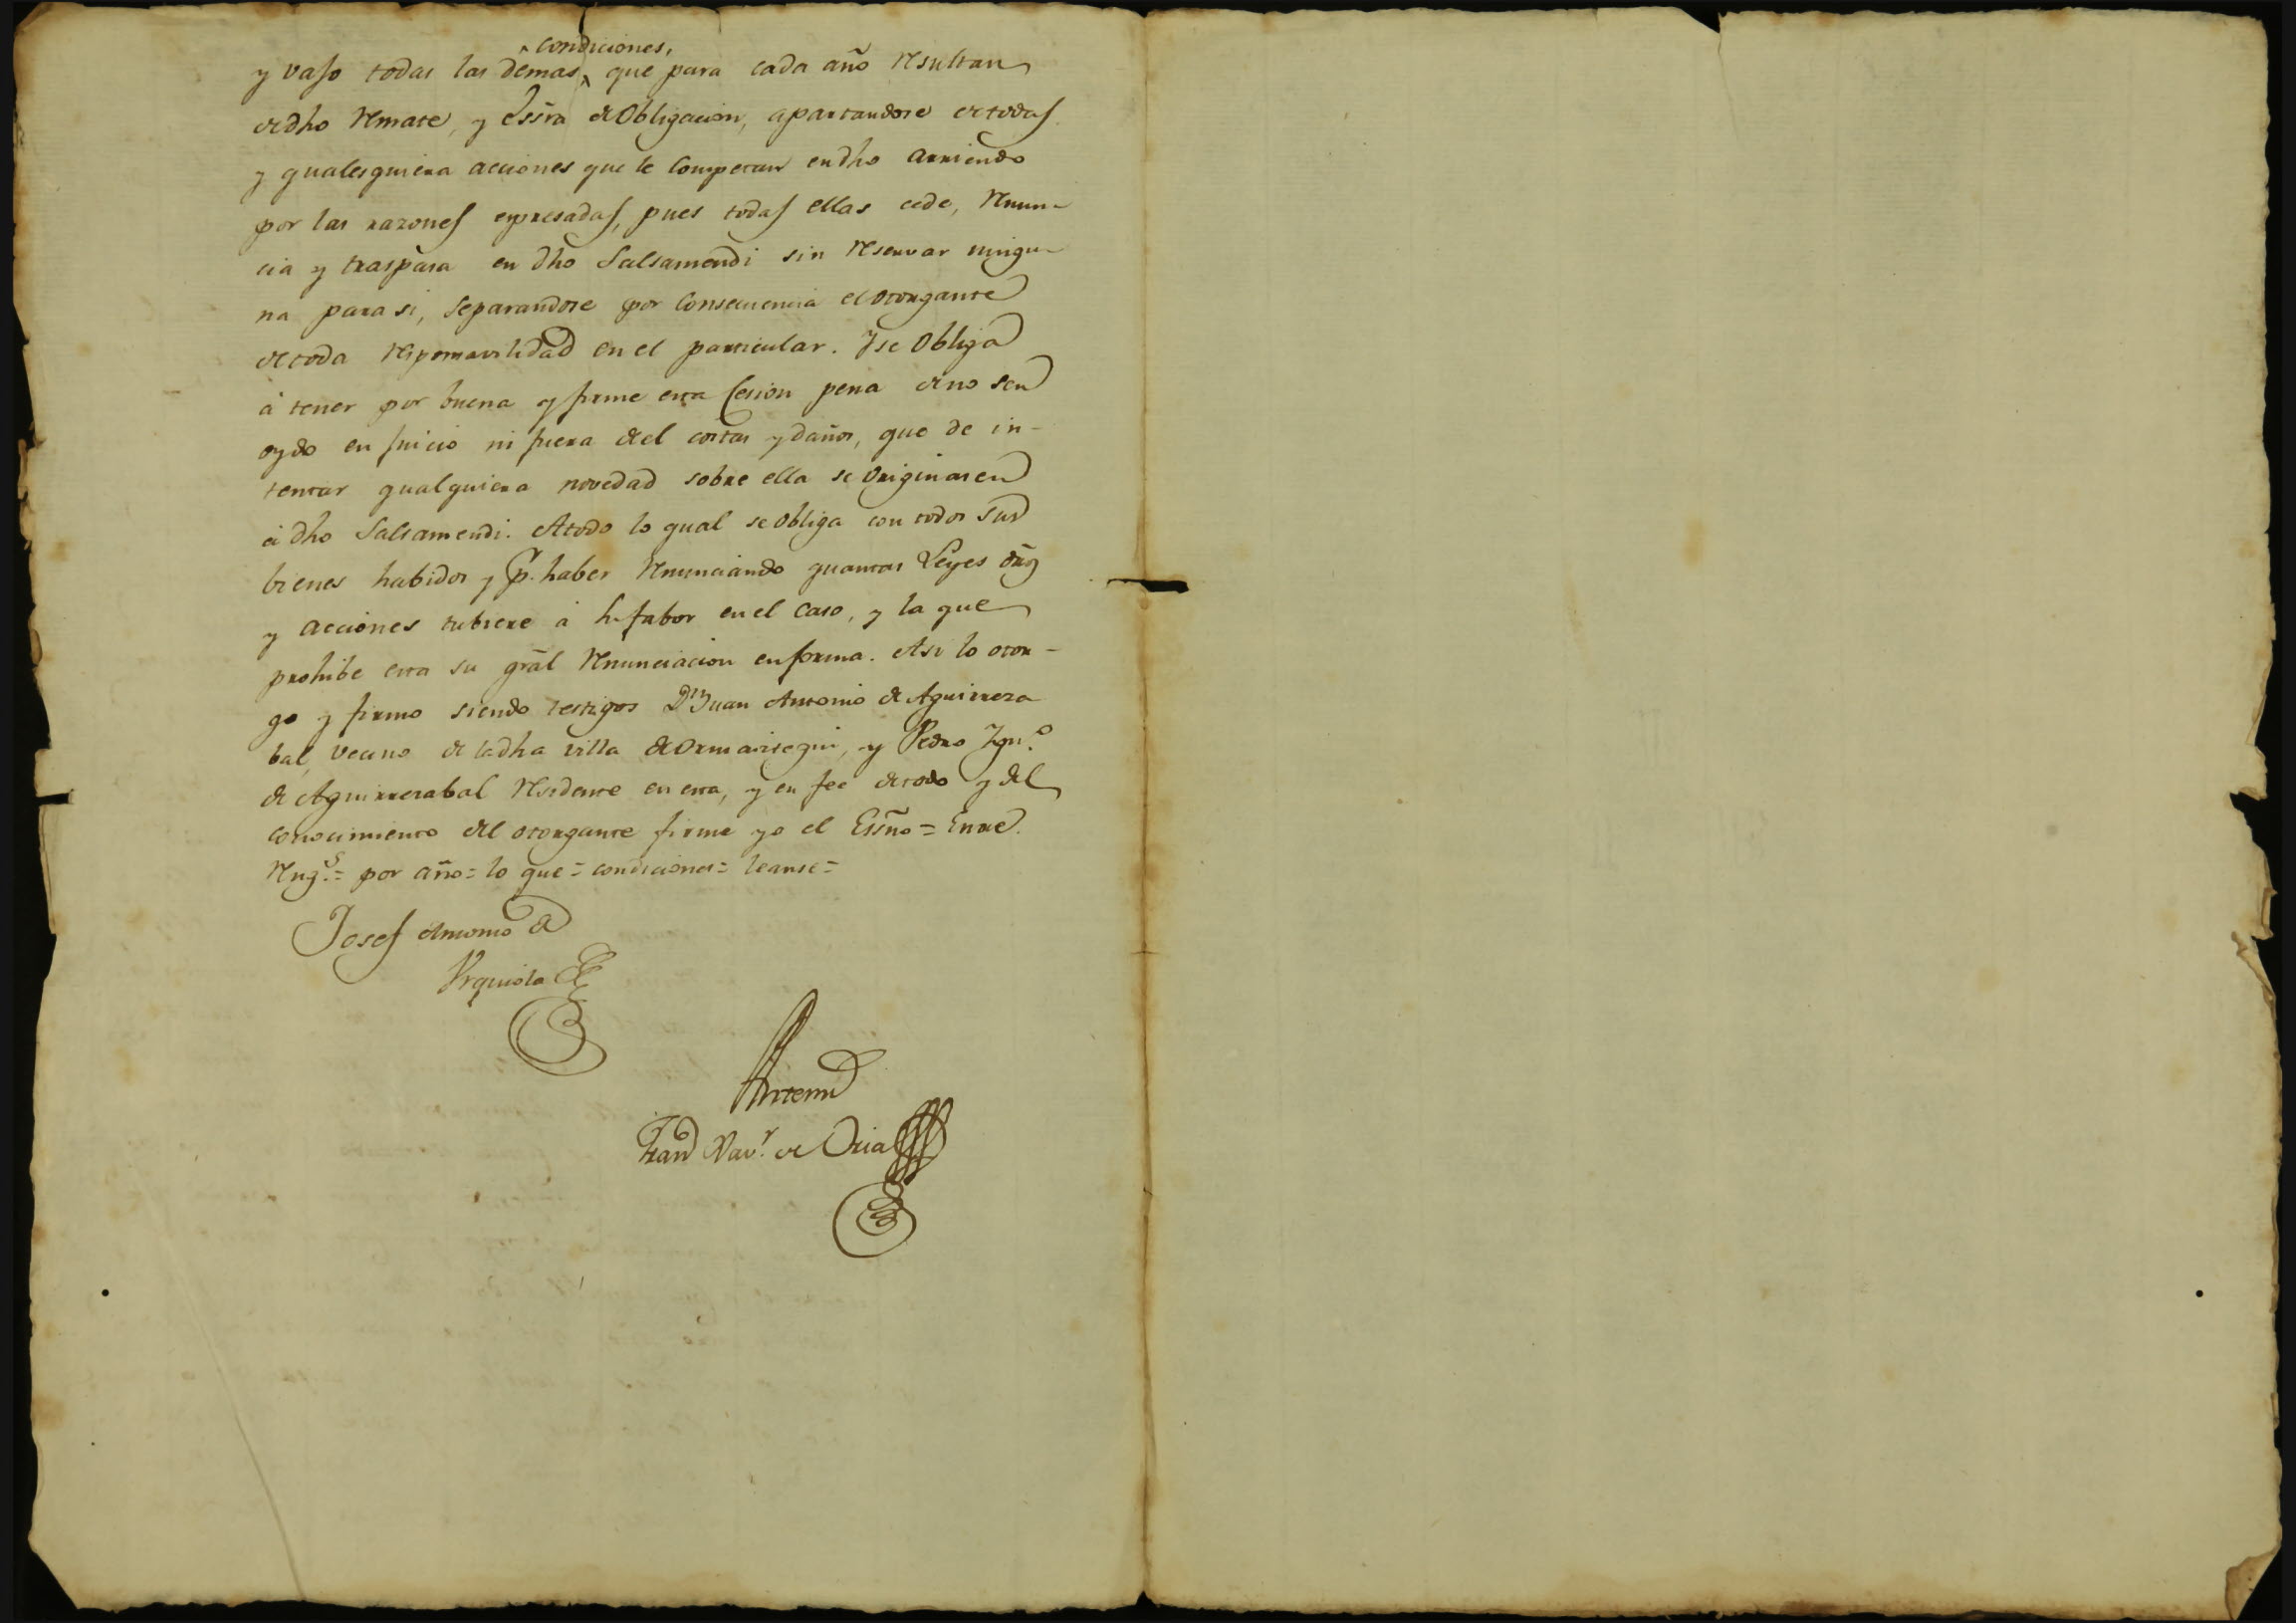 condiciones,
y vajo todas las demas que para cada año resultan
de dho remate, y Essra de Obligacion, apartandose de todas
y qualesquiera acciones que le competan en dho arriendo
por las razones expresadas, pues todas ellas cede, renun-
cia y traspasa en dho Salsamendi sin reservar ningu-
na para si, separandose por consecuencia el otorgante
de toda responsavilidad en el particular. Y se obliga
à tener por buena y firme esta Cesion pena de no ser
oydo en juicio ni fuera del costas y daños, que de in-
tentar qualquiera novedad sobre ella se originasen
à dho Salsamendi. A todo lo qual se obliga con todos sus
bienes habidos y p.r haber renunciando quantas Leyes dros
y acciones tubiere à su fabor en el caso, y la que
prohibe esta su gral renunciacion en forma. Asi lo otor-
go y firmo siendo testigos Dn Juan Antonio de Aguirreza
bal, vecino de la dha villa de Ormaiztegui, y Pedro Ign.o
de Aguirrezabal residente en esta, y en fee de todo y del
conocimiento del otorgante firme yo el Essño = Entre
reng.s = por año = lo que = condiciones = leanse =
Josef Antonio de
Urquiola
Antemi
Fran Xav.r de Oria